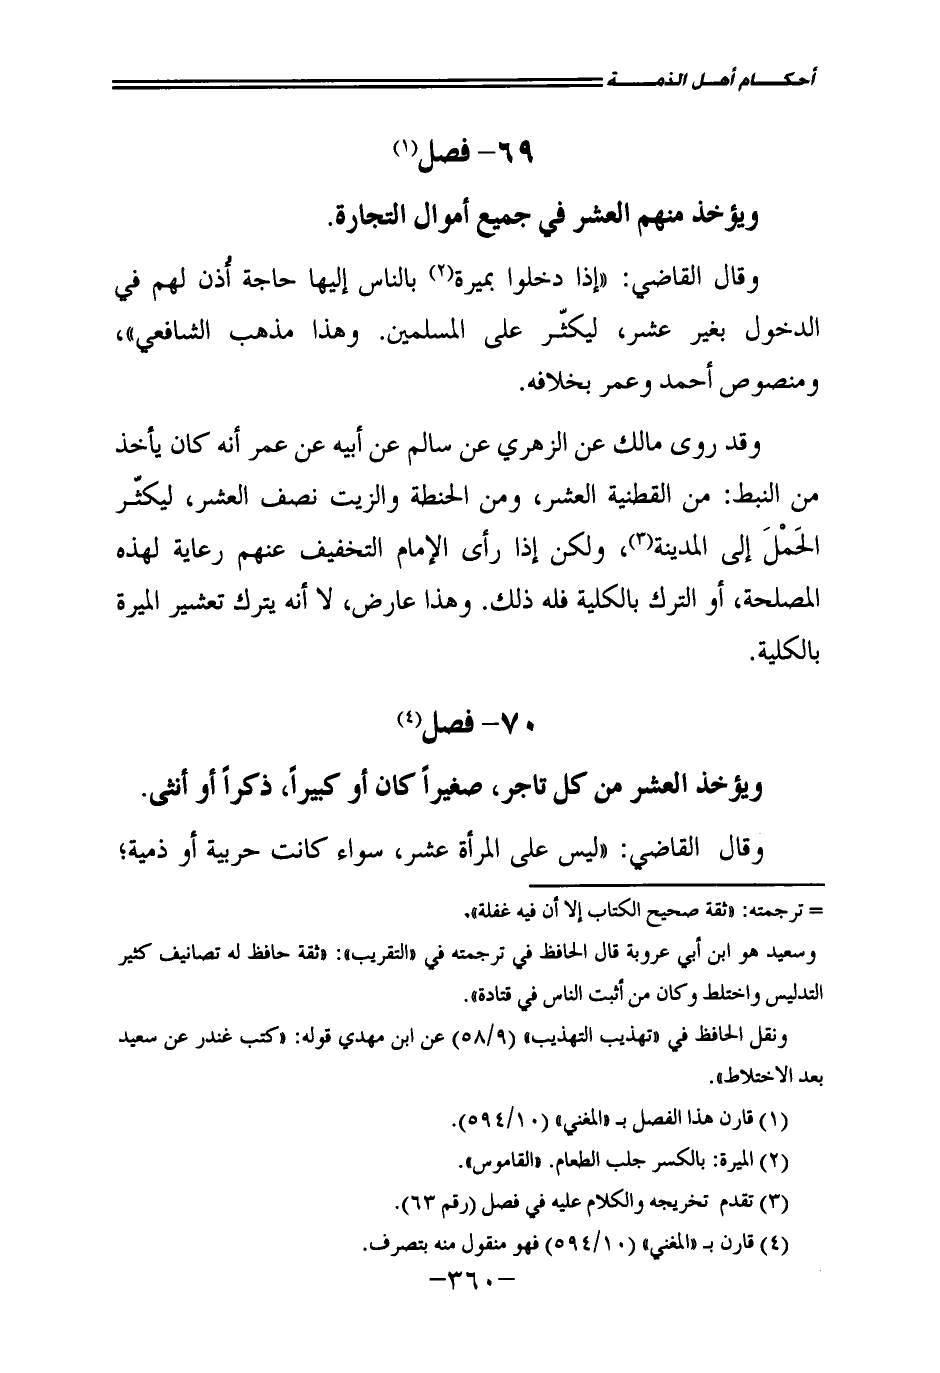 أحكـــام أهــل الذمـــة
٦٩- فصل(١)
ويؤخذ منهم العشر في جميع أموال التجارة.
وقال القاضي: «إذا دخلوا بميرة(٢) بالناس إليها حاجة أُذن لهم في
الدخول بغير عشر، ليكثّر على المسلمين. وهذا مذهب الشافعي»،
ومنصوص أحمد وعمر بخلافه.
وقد روى مالك عن الزهري عن سالم عن أبيه عن عمر أنه كان يأخذ
من النبط: من القطنية العشر، ومن الحنطة والزيت نصف العشر، ليكثّر
الحَمْلَ إلى المدينة(٣)، ولكن إذا رأى الإمام التخفيف عنهم رعاية لهذه
المصلحة، أو الترك بالكلية فله ذلك. وهذا عارض، لا أنه يترك تعشير الميرة
بالكلية.
٧٠- فصل(٤)
ويؤخذ العشر من كل تاجر، صغيراً كان أو كبيراً، ذكراً أو أنثى.
وقال القاضي: «ليس على المرأة عشر، سواء كانت حربية أو ذمية؛
= ترجمته: «ثقة صحيح الكتاب إلا أن فيه غفلة».
وسعيد هو ابن أبي عروبة قال الحافظ في ترجمته في «التقريب»: «ثقة حافظ له تصانيف كثير
التدليس واختلط وكان من أثبت الناس في قتادة».
ونقل الحافظ في «تهذيب التهذيب» (٥٨/٩) عن ابن مهدي قوله: «كتب غندر عن سعيد
بعد الاختلاط».
(١) قارن هذا الفصل بـ «المغني» (٥٩٤/١٠).
(٢) الميرة: بالكسر جلب الطعام. «القاموس».
(٣) تقدم تخريجه والكلام عليه في فصل (رقم ٦٣).
(٤) قارن بـ «المغني» (٥٩٤/١٠) فهو منقول منه بتصرف.
-٣٦٠-